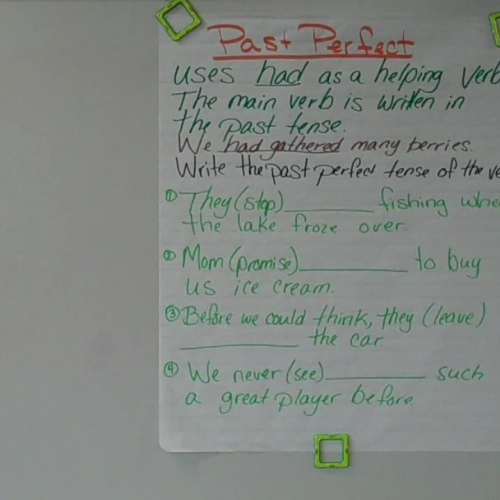 Past Perfect
uses had as a helping verb
The main verb is written in
the past tense.
We had gathered many berries.
Write the past perfect tense of the ve
① They (stop) ________ fishing whe
the lake froze over.
② Mom (promise) __________ to buy
us ice cream.
③ Before we could think, they (leave)
____________ the car.
④ We never (see) __________ such
a great player before.